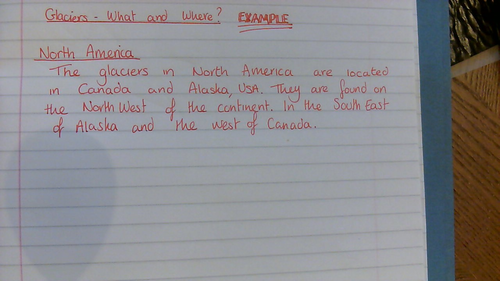 Glaciers - What and Where? EXAMPLE
North America
The glaciers in North America are located
in Canada and Alaska, USA. They are found on
the North West of the continent. In the South East
of Alaska and the west of Canada.